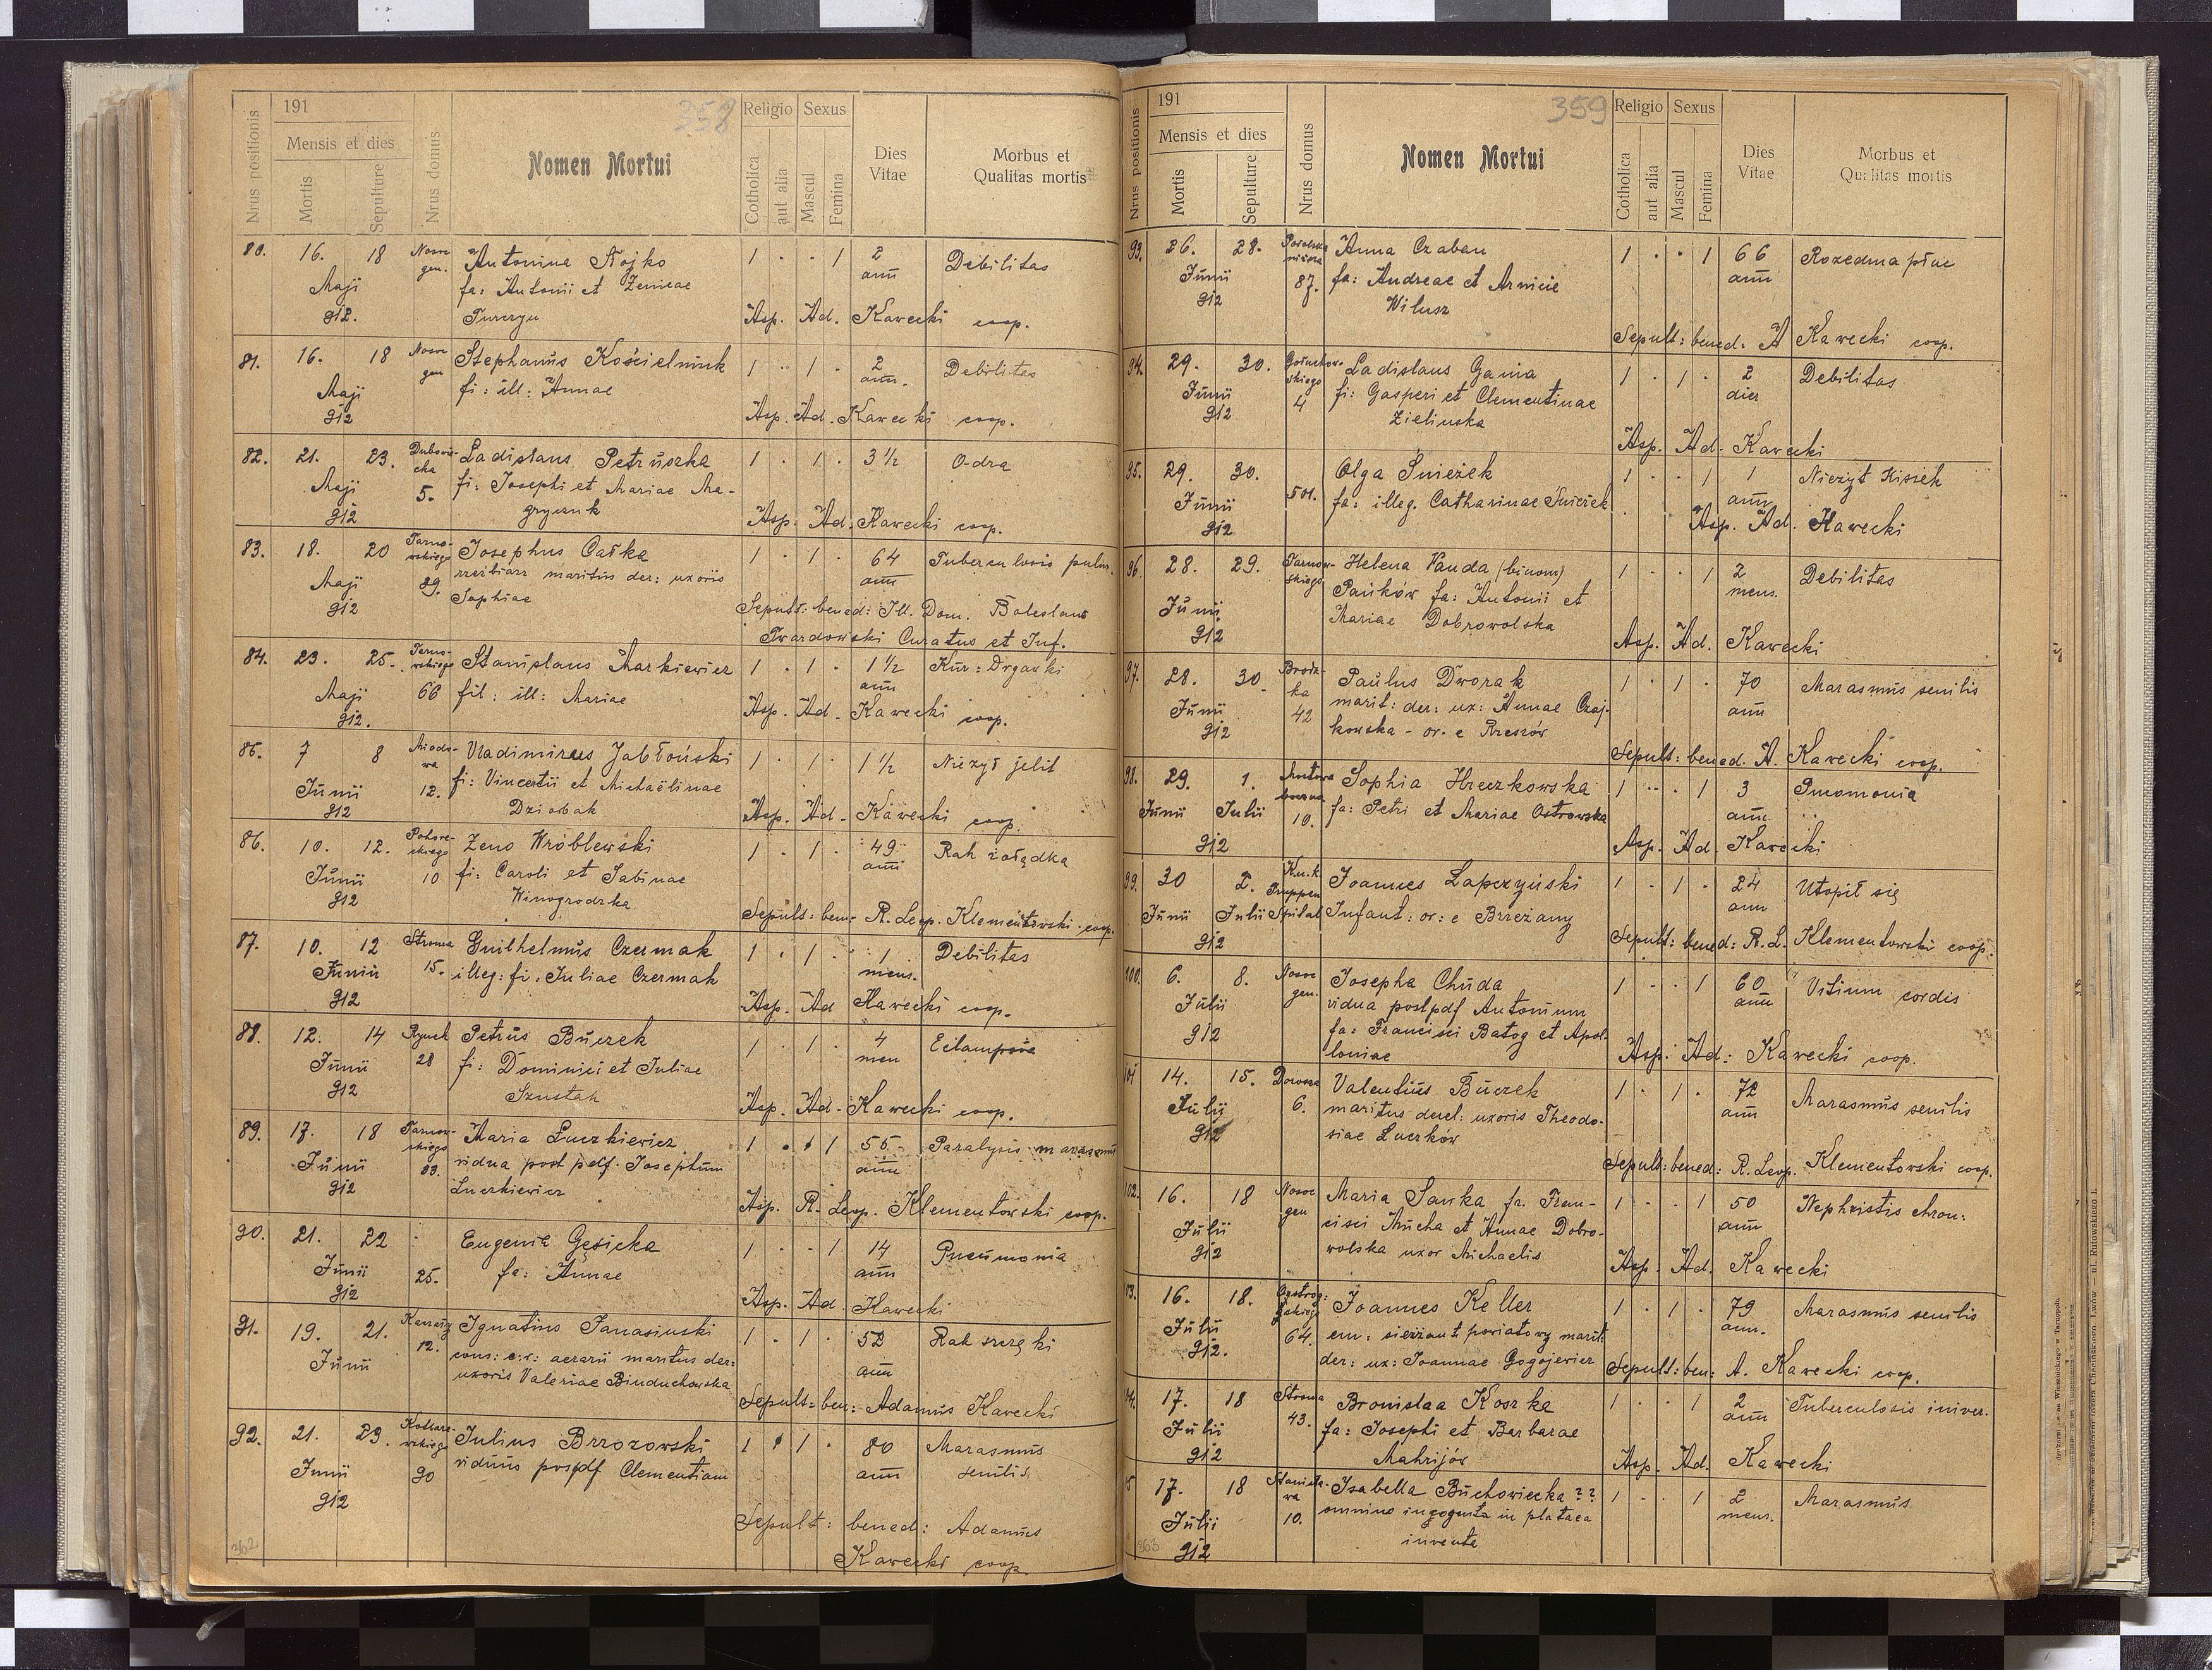 358
Nrus positionis
191
Mensis et dies
Mortis
Sepulture
Nrus domus
Nomen Mortui
Religio
Catholica
aut alia
Sexus
Mascul
Femina
Dies Vitae
Morbus et
Qualitas mortis
80. 16. 18 Nowe Antonina Stojko 1 · · 1 2 Debilitas
gen. fa: Antonii et Zenieae ann
Maji
912. Turczyn Asp. Ad. Kawecki coop.
81. 16. 18 Nowe Stephanus Kościelniuk 1 · 1 · 2 Debilitas
gen fi: ill: Annae ann.
Maji
912 Asp. Ad. Kawecki coop.
82. 21. 23. Dubowie- Ladislaus Petruszka 1 · 1 · 3 1/2 Odra
cka
Maji 5. fi: Josephi et Mariae Ma-
912 gryczuk Asp. Ad. Kawecki coop.
83. 18. 20 Tarno- Josephus Całka 1 · 1 · 64 Tuberculosis pulm.
wskiego rzeźbiarz maritus der: uxoris ann
Maji 89. Sophiae
912 Sepult: bened: Ill. Dom. Boleslaus
Twardowski Curatus et Inf.
84. 23. 25. Tarno- Stanislaus Markiewicz 1 · 1 · 1 1/2 Kur: Drgawki
wskiego
Maji 66 fil: ill: Mariae ann
912. Asp. Ad. Kawecki coop.
85. 7 8 Miodo- Vladimirus Jabłoński 1 · 1 · 1 1/2 Nieżyt jelit
wa
Junii 12. fi: Vincentii et Michaëlinae
912 Dziobak Asp. Ad. Kawecki coop.
86. 10. 12. Pohore- Zeno Wróblewski 1 · 1 · 49 Rak żołądka
ckiego
Junii 10 fi: Caroli et Sabinae ann
912 Winogrodzka
Sepult: ben: R. Leop. Klementowski coop.
87. 10. 12 Stroma Guilhelmus Czermak 1 · 1 · 1 Debilitas
Junii 15. illeg: fi: Juliae Czermak mens.
912 Asp. Ad Kawecki coop.
88. 12. 14 Rynek Petrus Buczek 1 · 1 · 4 Eclampsia
Junii 28 fi: Dominici et Juliae men
912 Szustak Asp. Ad. Kawecki coop.
89. 17. 18 Tarnow- Maria Łuczkiewicz 1 · 1 55 Paralysis marasmus
skiego
Junii 83. vidua post pdf. Josephum ann
912 Łuczkiewicz Asp. R. Leop. Klementowski coop.
90. 21. 22 Eugenia Gęsicka 1 · · 1 14 Pneumonia
Junii 25. fa: Annae ann
912 Asp. Ad. Kawecki
91. 19. 21. 12. Ignatius Panasiuski 1 · 1 · 52 Rak szczęki
Junii cons: c: r: aerarii maritus der: ann
uxoris Valeriae Binduchowska
Sepult: ben: Adamus Kawecki
92. 21. 23. Julius Brzozowski 1 1 · 80 Marasmus
Junii 90 viduus post pdf Clementiam ann senilis
912
Sepult: bened: Adamus
Kawecki coop.
362
359
Nrus positionis
191
Mensis et dies
Mortis
Sepulture
Nrus domus
Nomen Mortui
Religio
Catholica
aut alia
Sexus
Mascul
Femina
Dies Vitae
Morbus et
Qualitas mortis
93. 26. 28. Anna Czaban 1 · · 1 66 Rozedma płuc
Junii 87. fa: Andreae et Arnicie ann
912 Wilusz
Sepult: bened. A Kawecki coop.
94. 29. 30. Gołuchow- Ladislaus Gania 1 · 1 · 2 Debilitas
skiego
Junii 4 fi: Gasperi et Clementinae dier
912 Zielinska
Asp. Ad. Kawecki
95. 29. 30. Olga Śnieżek 1 · · 1 1 Nieżyt Kiszek
Junii 501. fa: illeg. Catharinae Śnieżek ann
912 Asp. Ad. Kawecki
96. 28. 29. Tarnow- Helena Vanda (binom) 1 · · 1 2 Debilitas
skiego Pańków fa: Antonii et mens.
Junii Mariae Dobrowolska
912 Asp. Ad. Kawecki
97. 28. 30. Brodz- Paulus Dworak 1 · 1 · 70 Marasmus senilis
ka
Junii 42 marit: der: ux: Annae Czaj- ann
912 kowska - or. e Rzeszów
Sepult: bened. A. Kawecki coop.
98. 29. 1. Sophia Hreczkowska 1 · · 1 3 Pneomonia
Junii Julii 10. fa: Petri et Mariae Ostrowska ann
912 Asp. Ad. Kawecki
99. 30 2. K.u.k Joannes Łapczyński 1 · 1 · 24 Utopił się
Truppen
Junii Julii Spital Infant: or: e Brzeżany ann
912 Sepult: bened: R. L. Klementowski coop.
100. 6. 8. Nowe Josepha Chuda 1 · · 1 60 Vitium cordis
gen. vidua post pdf Antonium ann
Julii fa: Francisci Batog et Apol-
912 loniae Asp. Ad: Kawecki coop.
101 14. 15. 6. Valentius Buczek 1 · 1 · 72 Marasmus senilis
Julii maritus derel: uxoris Theodo- ann
912 siae Łuczków
Sepult: bened: R. Leop. Klementowski coop.
102. 16. 18 Nowe Maria Sawka fa. Fran- 1 · · 1 50 Nephristis chron:
gen cisci Mucha et Annae Dobro- ann
Julii wolska uxor Michaelis
912 Asp. Ad. Kawecki
03. 16. 18. Joannes Keller 1 · 1 · 79 Marasmus senilis
Julii 64. em: sierżant powiatowy marit: ann.
912. der: ux: Joannae Gogojewicz
Sepult: ben: A. Kawecki coop.
04. 17. 18 Stroma Bronislaa Koszka 1 · · 1 2 Tuberculosis univer.
Julii 43. fa: Josephi et Barbarae ann
912 Mahrijów Asp. Ad. Kawecki
5 17. 18 Stanisła- Isabella Buchowiecka ?? 1 · · 1 2 Marasmus
wa
Julii 10. omnino ingognita in plataea mens.
912 inventa
363